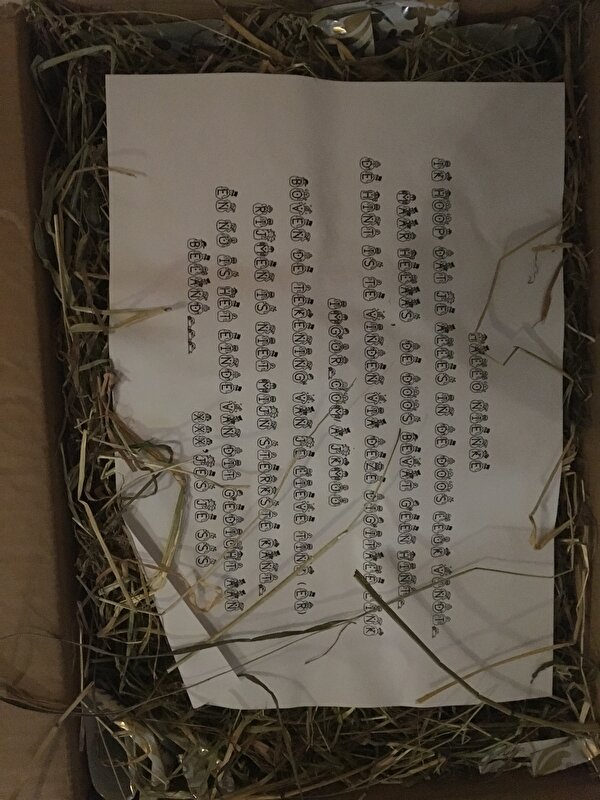 HALLO NIENKE
IK HOOP DAT JE ALLES IN DE DOOS LEUK VINDT.
MAAR HELAAS, DE DOOS BEVAT GEEN HINT.
DE HINT IS TE VINDEN VIA DEZE DIGITALE LINK
IMGUR.COM/A/
BOVEN DE TEKENING VAN JE LIEVE TINK(ER
RIJMEN IS NIET MIJN STERKSTE KANT.
EN NO IS HET EINDE VAN DIT GEDICHT AAN
BELAND...
XXX,JES TE SSS